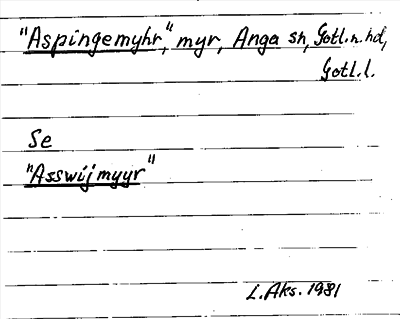 "Aspingemyhr," myr, Anga sn, Gotl.n.hd,
Gotl.l.
Se
"Asswijmyyr"
L.Aks. 1981